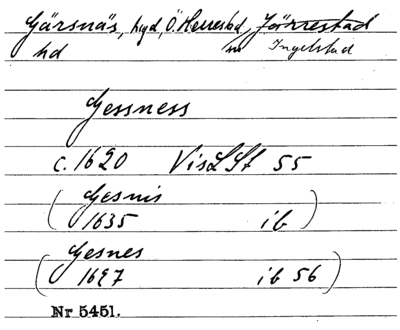 Gärsnäs, hgd, Ö. Herrestad, Järrestad
hd Ingelstad
Gessness
c. 1620 VisLSt 55
(Gesnis
1635 ib)
(Gesnes
1697 ib 56)
Nr 5451.